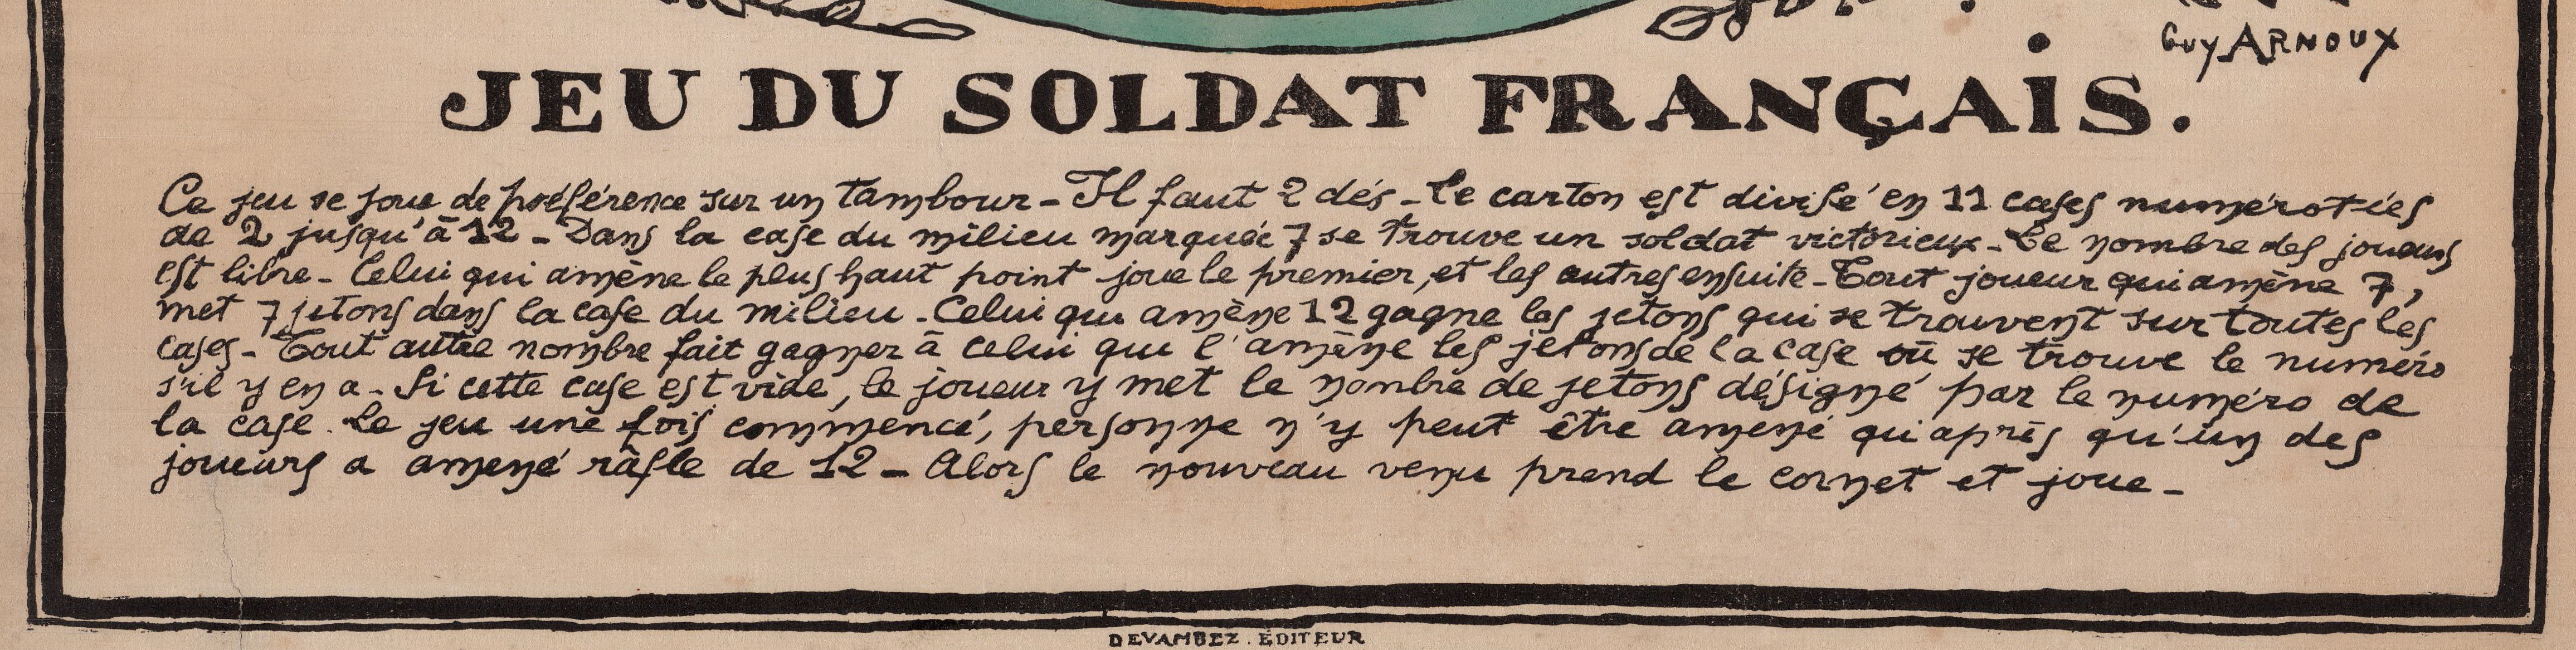 Guy ARNOUX
JEU DU SOLDAT FRANÇAIS.
Ce jeu se joue de préférence sur un tambour - Il faut 2 dés - Le carton est divisé en 11 cases numérotées
de 2 jusqu'à 12 - Dans la case du milieu marquée 7 se trouve un soldat victorieux - Le nombre des joueurs
est libre - Celui qui amène le plus haut point joue le premier, et les autres ensuite - Tout joueur qui amène 7,
met 7 jetons dans la case du milieu - Celui qui amène 12 gagne les jetons qui se trouvent sur toutes les
cases - Tout autre nombre fait gagner à celui qui l'amène les jetons de la case où se trouve le numéro
s'il y en a - Si cette case est vide, le joueur y met le nombre de jetons désigné par le numéro de
la case. Le jeu une fois commencé, personne n'y peut être amené qu'après qu'un des
joueurs a amené râfle de 12 - Alors le nouveau venu prend le cornet et joue -
DEVAMBEZ . ÉDITEUR